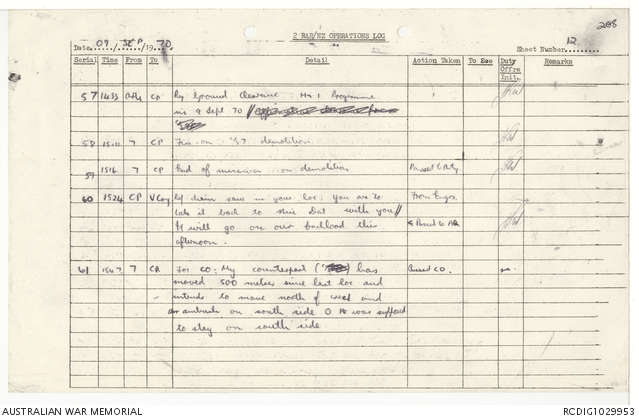 268
2 RAR/NZ OPERATIONS LOG
Date 09 / SEP /1970
Sheet Number 12
Serial Time From To Detail Action Taken To See Duty Offrs Init. Remarks
57 1433 CP Ground Clearance No 1 Programme
9 Sept 70 //
58 1511 7 CP Fire on demolition
59 1516 7 CP End of on demolition Passed
60 1524 CP V Coy Ref chain saw in your loc: You are to From
take it back to with you // & Passed to
It will go on our backload this
afternoon.
61 1547 7 CP For CO: My counterpart ( ) has Passed CO.
moved 500 metres since last loc and
intends to move north of and
ambush on south side He was supposed
to stay on south side
AUSTRALIAN WAR MEMORIAL
RCDIG1029953